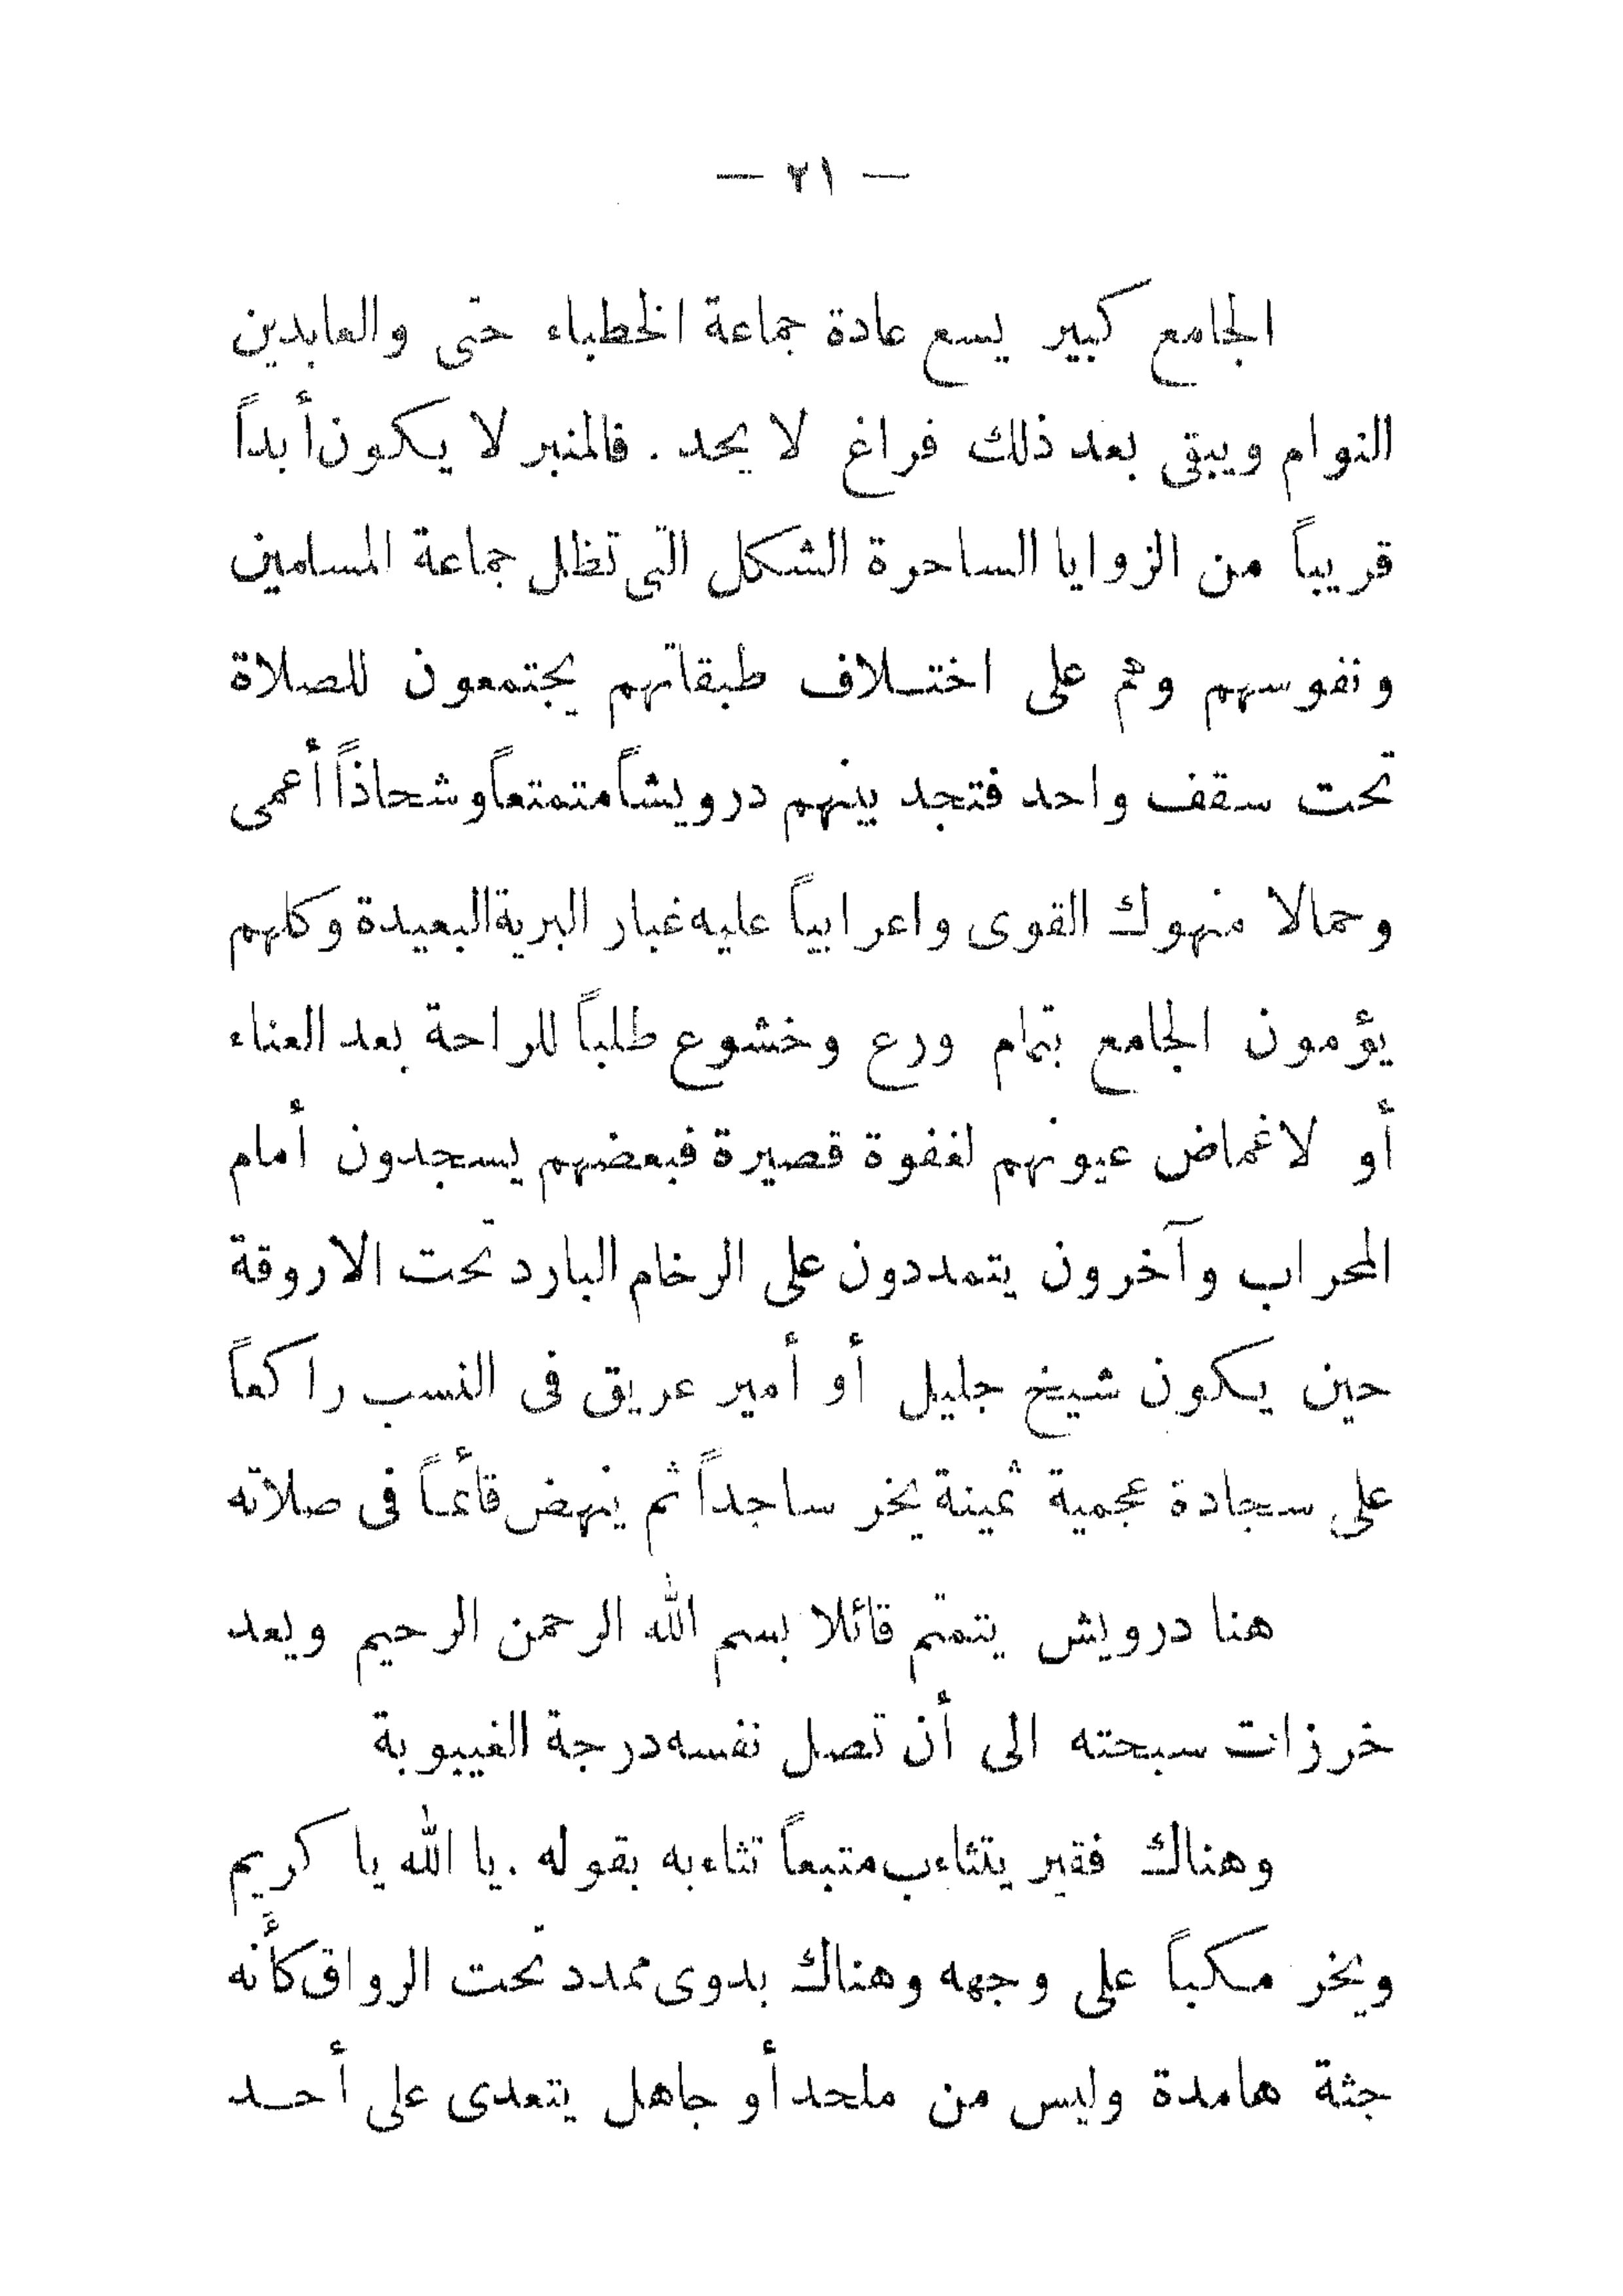 — ٢١ —
الجامع كبير يسع عادة جماعة الخطباء حتى والعابدين
النوام ويبقى بعد ذلك فراغ لا يحد . فالمنبر لا يكون أبداً
قريباً من الزوايا الساحرة الشكل التى تظلل جماعة المسلمين
ونفوسهم وهم على اختلاف طبقاتهم يجتمعون للصلاة
تحت سقف واحد فتجد بينهم درويشاً متمتعاً وشحاذاً أعمى
وحمالا منهوك القوى واعرابياً عليه غبار البرية البعيدة وكلهم
يؤمون الجامع بتمام ورع وخشوع طلباً للراحة بعد العناء
أو لاغماض عيونهم لغفوة قصيرة فبعضهم يسجدون أمام
المحراب وآخرون يتمددون على الرخام البارد تحت الاروقة
حين يكون شيخ جليل أو أمير عريق فى النسب راكعاً
على سجادة عجمية ثمينة يخر ساجداً ثم ينهض قائماً فى صلاته
هنا درويش يتمتم قائلا بسم الله الرحمن الرحيم ويعد
خرزات سبحته الى أن تصل نفسه درجة الغيبوبة
وهناك فقير يتثاءب متبعاً تثاءبه بقوله . يا الله يا كريم
ويخر مكباً على وجهه وهناك بدوى ممدد تحت الرواق كأنه
جثة هامدة وليس من ملحد أو جاهل يتعدى على أحد